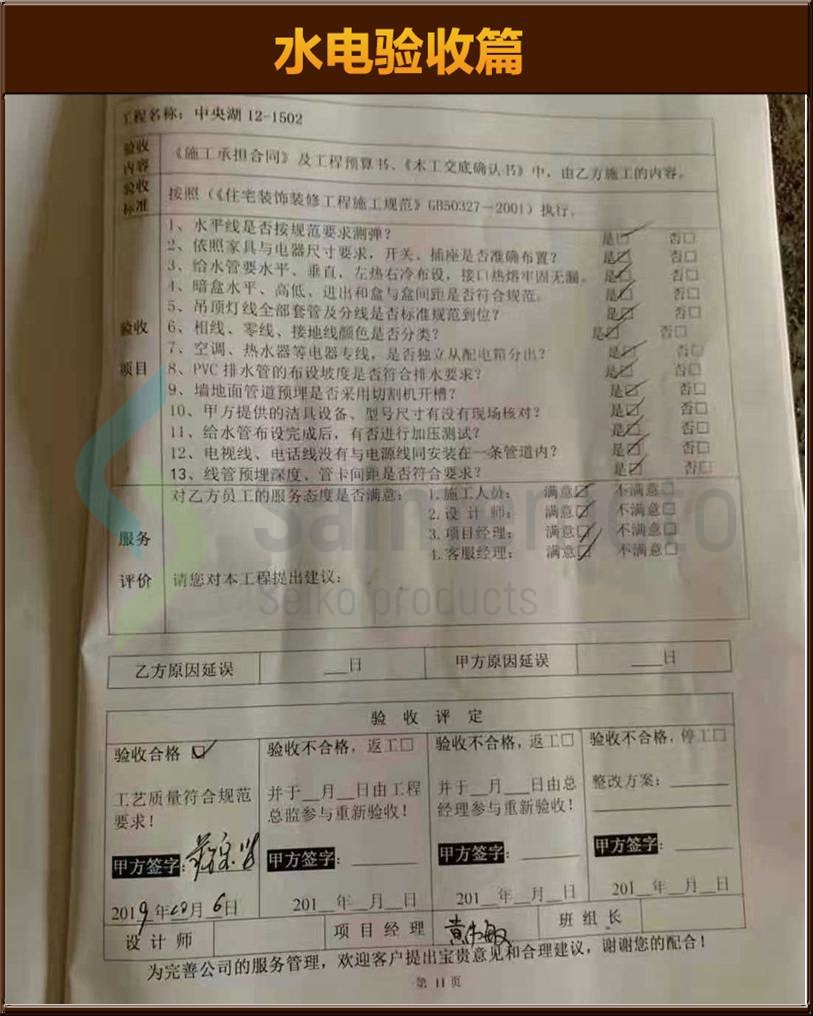 水电验收篇
工程名称：中央湖 12-1502
验收内容 《施工承担合同》及工程预算书、《木工交底确认书》中，由乙方施工的内容。
验收标准 按照（《住宅装饰装修工程施工规范》GB50327-2001）执行。
验收项目
1、水平线是否按规范要求测弹？ 是☑ 否□
2、依照家具与电器尺寸要求，开关、插座是否准确布置？ 是☑ 否□
3、给水管要水平、垂直，左热右冷布设，接口热熔牢固无漏。 是☑ 否□
4、暗盒水平、高低、进出和盒与盒间距是否符合规范。 是☑ 否□
5、吊顶灯线全部套管及分线是否标准规范到位？ 是☑ 否□
6、相线、零线、接地线颜色是否分类？ 是☑ 否□
7、空调、热水器等电器专线，是否独立从配电箱分出？ 是☑ 否□
8、PVC 排水管的布设坡度是否符合排水要求？ 是☑ 否□
9、墙地面管道预埋是否采用切割机开槽？ 是☑ 否□
10、甲方提供的洁具设备、型号尺寸有没有现场核对？ 是☑ 否□
11、给水管布设完成后，有否进行加压测试？ 是☑ 否□
12、电视线、电话线没有与电源线同安装在一条管道内？ 是☑ 否□
13、线管预埋深度、管卡间距是否符合要求？ 是☑ 否□
服务评价
对乙方员工的服务态度是否满意： 1.施工人员： 满意☑ 不满意□
2.设 计 师： 满意☑ 不满意□
3.项目经理： 满意☑ 不满意□
4.客服经理： 满意☑ 不满意□
请您对本工程提出建议：
Seiko products
乙方原因延误 __日 甲方原因延误 __日
验 收 评 定
验收合格 ☑ 验收不合格，返工□ 验收不合格，返工□ 验收不合格，停工□
工艺质量符合规范 并于__月__日由工程 并于__月__日由总 整改方案：
要求！ 总监参与重新验收！ 经理参与重新验收！
甲方签字： 甲方签字： 甲方签字： 甲方签字：
2019年10月6日 201__年__月__日 201__年__月__日 201__年__月__日
设计师 项目经理 班组长
为完善公司的服务管理，欢迎客户提出宝贵意见和合理建议，谢谢您的配合！
第 11 页